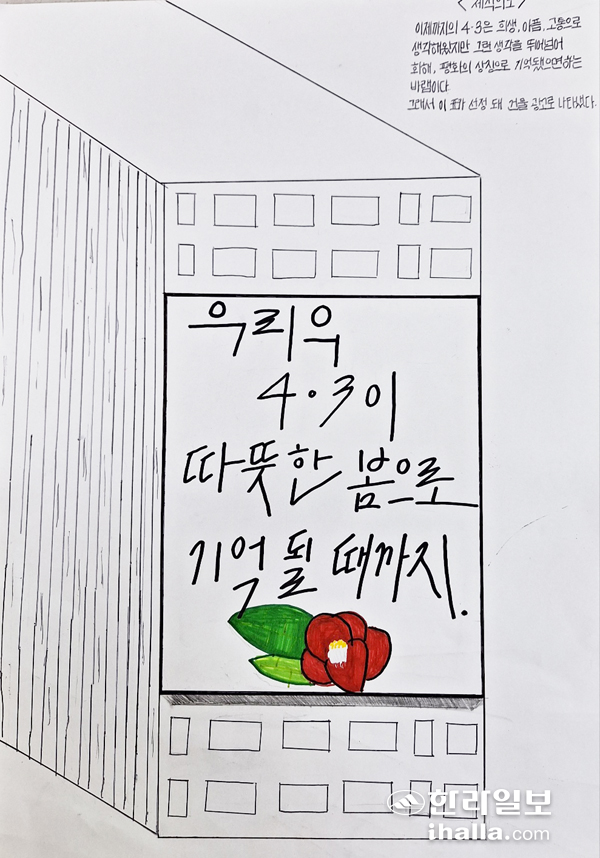 < 제작의도 >
이제까지의 4·3은 희생, 아픔, 고통으로
생각해왔지만 그런 생각을 뛰어넘어
화해, 평화의 상징으로 기억됐으면하는
바램이다.
그래서 이 표가 선정 돼 건물 광고로 나타냈다.
우리의
4·3이
따뜻한 봄으로
기억 될 때까지.
한라일보
ihalla.com